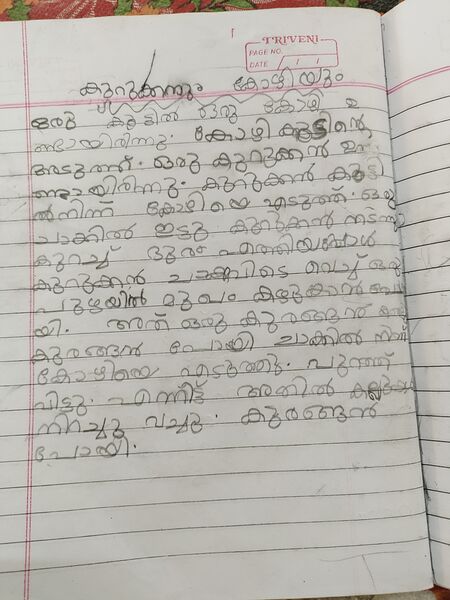 TRIVENI
PAGE NO.
DATE / / /
കുറുക്കനും കോഴിയും
ഒരു കൂട്ടിൽ ഒരു കോഴി ഉ
ണ്ടായിരുന്നു. കോഴി കൂട്ടിന്റെ
അടുത്ത് ഒരു കുറുക്കൻ ഉ
ണ്ടായിരിന്നു. കുറുക്കൻ കൂട്ടി
ൽനിന്ന് കോഴിയെ എടുത്ത് ഒരു
ചാക്കിൽ ഇട്ടു കുറുക്കൻ നടന്നു
കുറച്ച് ദൂരം എത്തിയപ്പോൾ
കുറുക്കൻ ചാക്ക് അവിടെ വെച്ച് ഒരു
പുഴയിൽ മുഖം കഴുകാൻ പോ
യി. അത് ഒരു കുരങ്ങൻ കണ്ടു
കുരങ്ങൻ പോയി ചാക്കിൽ നിന്ന്
കോഴിയെ എടുത്തു. പുറത്ത്
വിട്ടു. എന്നിട്ട് അതിൽ കല്ലുകൾ
നിറച്ചു വച്ചു. കുരങ്ങൻ
പോയി.